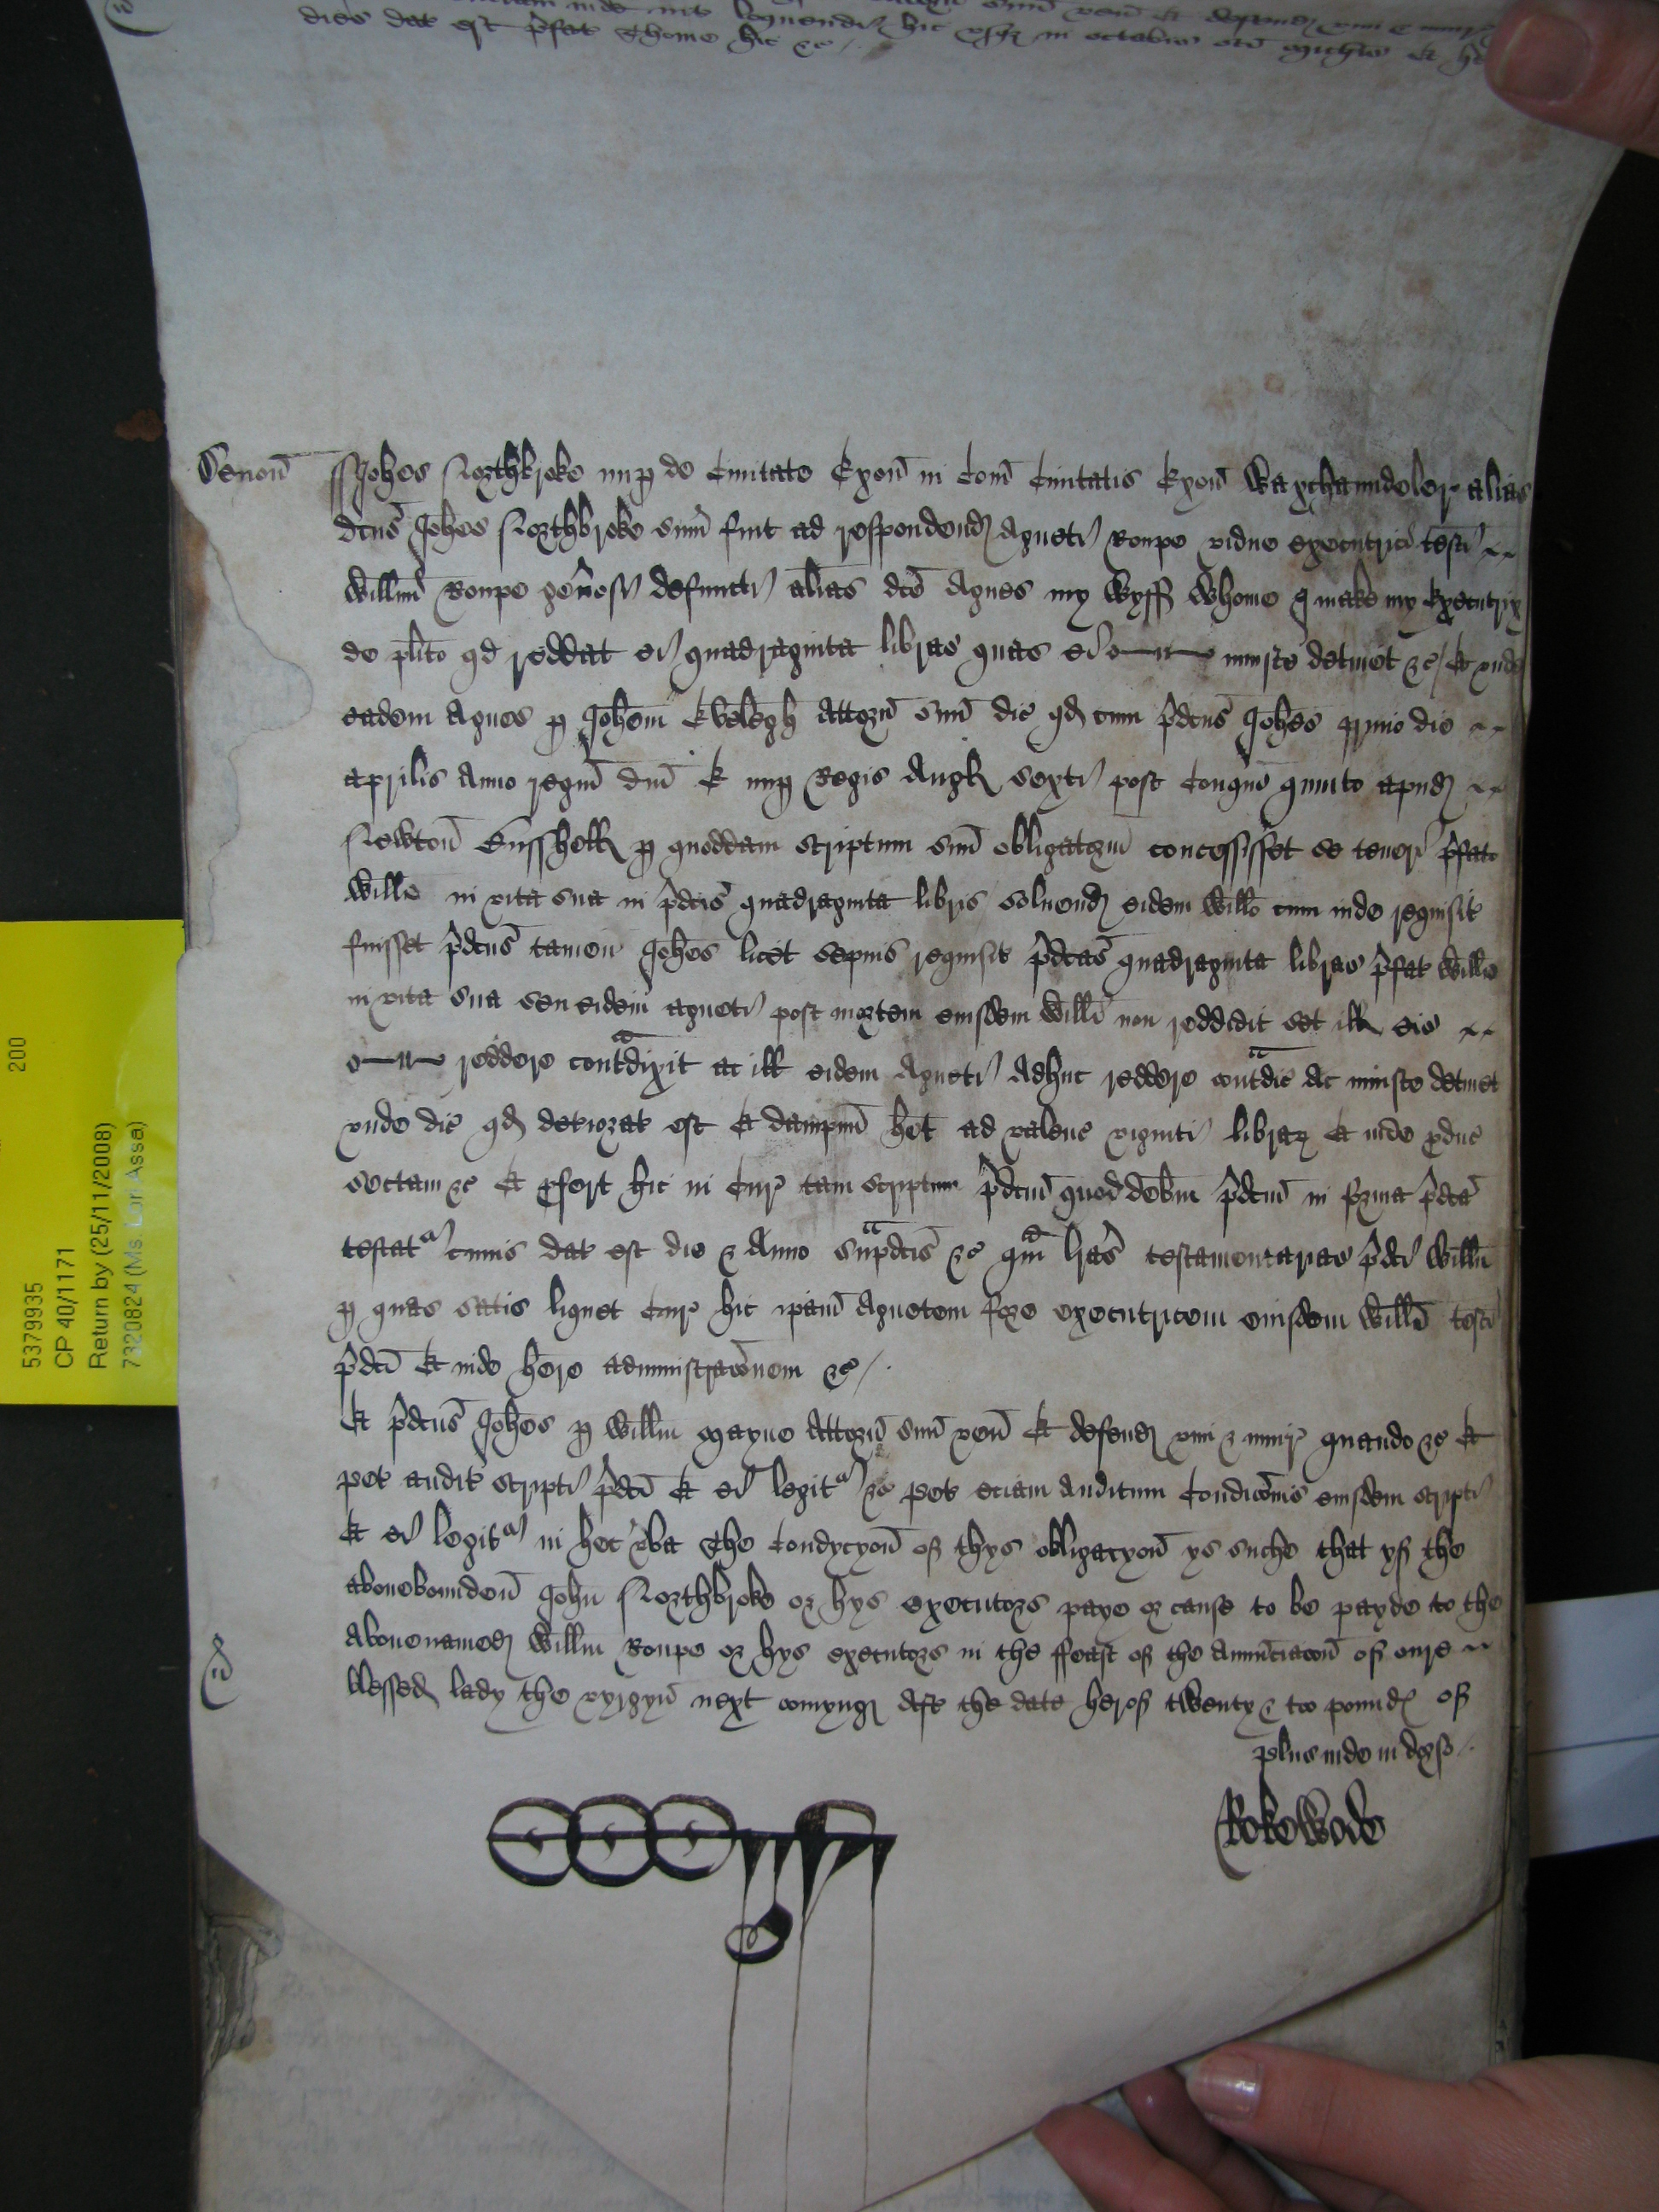 dies dat est p̄fat Thome hic &c /
Devoñ Joh̄es Northbroke nup de Civitate Exoñ in Com̄ Civitatis Exoñ Waxchaundeler alias
dc̄us Joh̄es Northbroke sum̄ fuit ad respondend Agneti Roupe vidue executrici testi
Will̄mi Roupe gen̄osi defuncti alias dc̄e Agnes my Wyff Whome I make my Executrix
de pl̄ito qd reddat ei quadraginta libras quas ei iniuste detinet &c / Et unde
eadem Agnes p Joh̄em Evelegh Attorñ suū dic̄ qd cum p̄dc̄us Joh̄es primo die
Aprilis Anno regni dn̄i E nup Regis Angl sexti post conqm̄ quinto apud
Newtoñ Busshell p quoddam scriptum suū obligatoriū concessisset se teneri p̄fato
Will̄o in vita sua in p̄dc̄is quadraginta libris solvend eidem Will̄o cum inde requisit
fuisset p̄dc̄us tamen Joh̄es licet sepius requisit p̄dc̄as quadraginta libras p̄fat Will̄o
in vita sua seu eidem Agneti post mortem eiusdem Will̄i non reddidit set ill eis
reddere contradixit ac ill eidem Agneti adhuc reddere contradic̄ ac iniuste detinet
unde dic̄ qd deteriorat est Et dampnū h̄et ad valenc̄ viginti librar Et inde pduc̄
sectam &c Et pfert hic in Cur tam scriptum p̄dc̄um quod debitm p̄dc̄um in forma p̄dc̄a
testatr cuius dat est die & Anno sup̄adc̄is &c qm̄ lr̄as testamentarias p̄dc̄i Will̄i
p quas satis liquet Cur hic ip̄am Agnetem fore executricem eiusdem Will̄i testi
p̄dc̄i Et inde h̄ere administrac̄onem &c /
Et p̄dc̄us Joh̄es p Will̄m Mayne Attorñ suū ven̄ Et defend vim & iniur quando &c Et
pet auditū scripti p̄dc̄i Et ei legitr &c pet eciam auditum Condic̄onis eiusdem scripti
Et ei legitr in hec v̄ba The Condycyon̄ of thys obligacyon̄ ys suche that yf the
abovebounden̄ John̄ Northbroke or hys executors paye or cause to be payde to the
abovenamed Will̄m Roupe or hys executors in the ffeast of the Annūciacon̄ of oure
blessed lady the vyrgyn̄ next comyng aft the date herof twenty & too pound of
plus inde in dorso /
Rokewode
5379935
200
CP 40/1171
Return by (25/11/2008)
7320824 (Ms. Lori Assa)